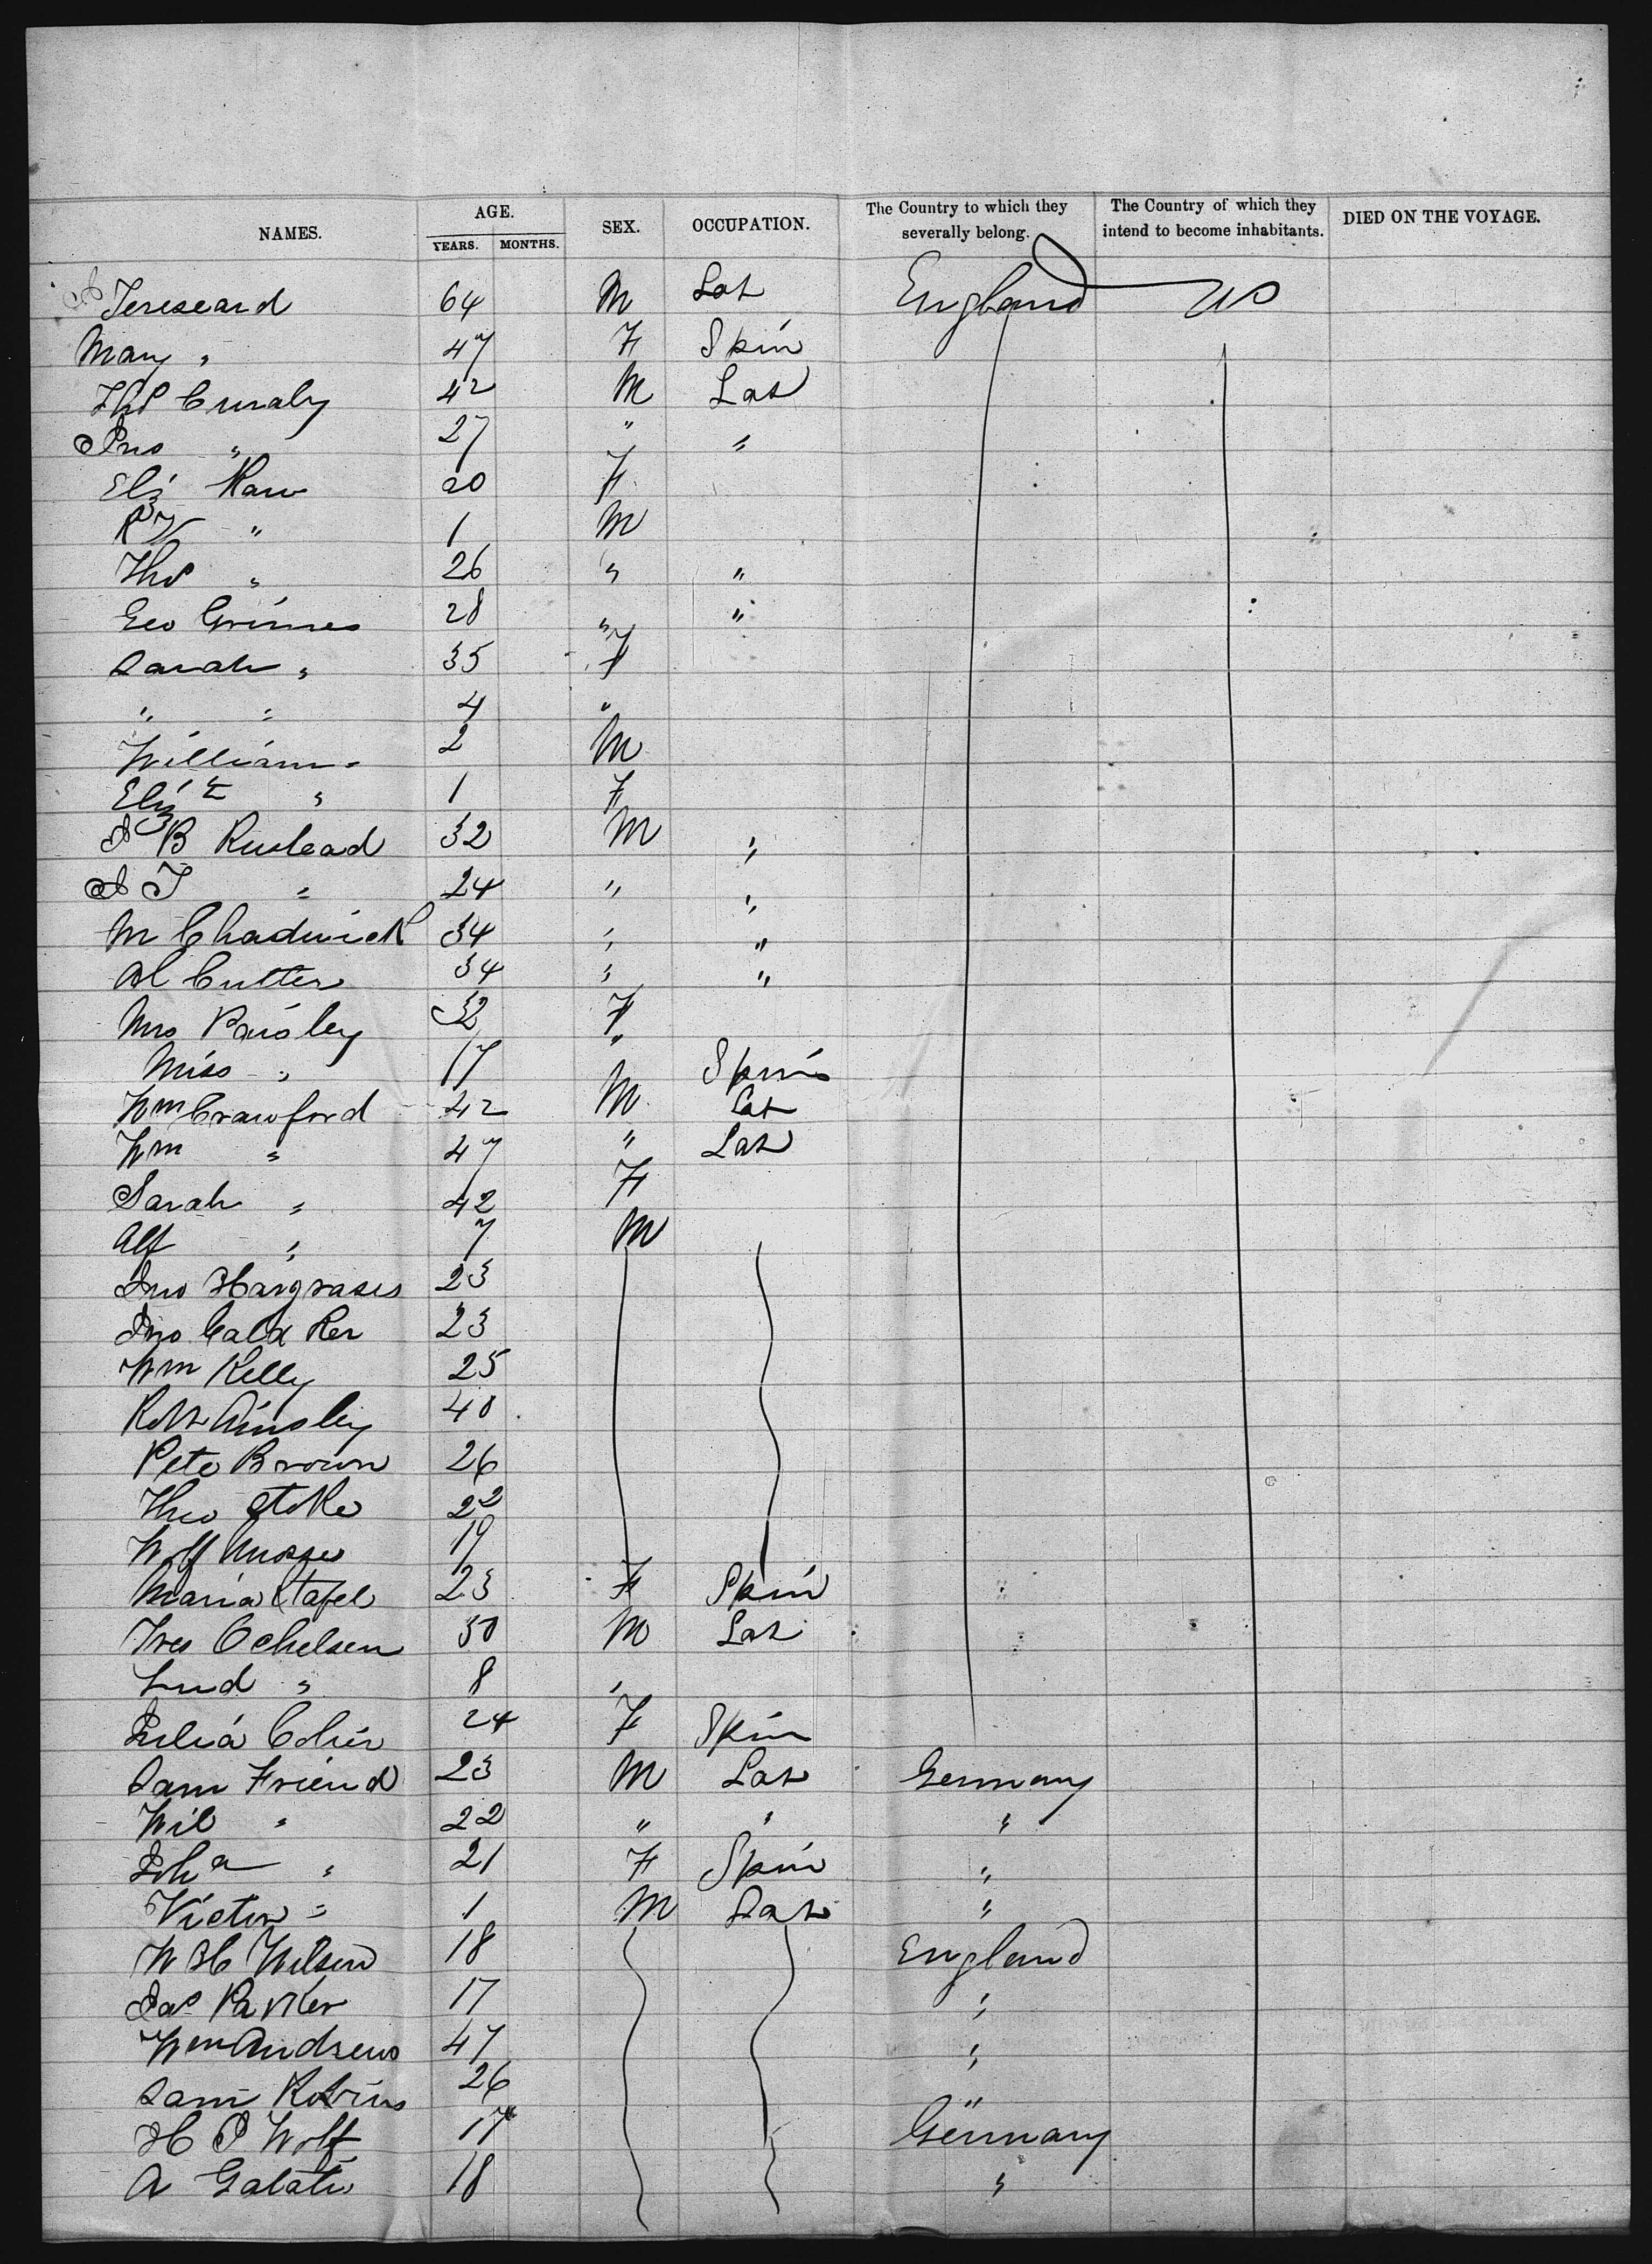 NAMES. AGE. YEARS. MONTHS. SEX. OCCUPATION. The Country to which they severally belong. The Country of which they intend to become inhabitants. DIED ON THE VOYAGE.
64 M Lab England US
Mary " 47 F Spin
Thos 42 M Lab
Jno " 27 " "
Eliz 20 F
" 1 M
Thos " 26 " "
Geo Grimes 28 " "
Sarah " 35 F
" " 4 "
William " 2 M
Elizth " 1 F
B 32 M "
J " 24 " "
M Chadwick 34 " "
Al Cutter 34 " "
Mrs Paisley 32 F
Miss " 17 " Spin
Wm Crawford 42 M Lab
Wm " 47 " Lab
Sarah " 42 F
Alf " 7 M
Jno Hargraves 23
Jno 23
Wm Kelly 25
Robt Ainsley 40
Pete Brown 26
Theo 22
Wolf 19
Maria Stafel 23 F Spin
30 M Lab
Lud " 8 "
Julia 24 F Spin
Sam Friend 23 M Lab Germany
Wil " 22 " " "
Joha " 21 F Spin "
Victor " 1 M Lab "
W H Wilson 18 England
Jas Parker 17 "
Wm Andrews 47 "
Sam Robins 26 "
H P Wolf 17 Germany
A Galati 18 "